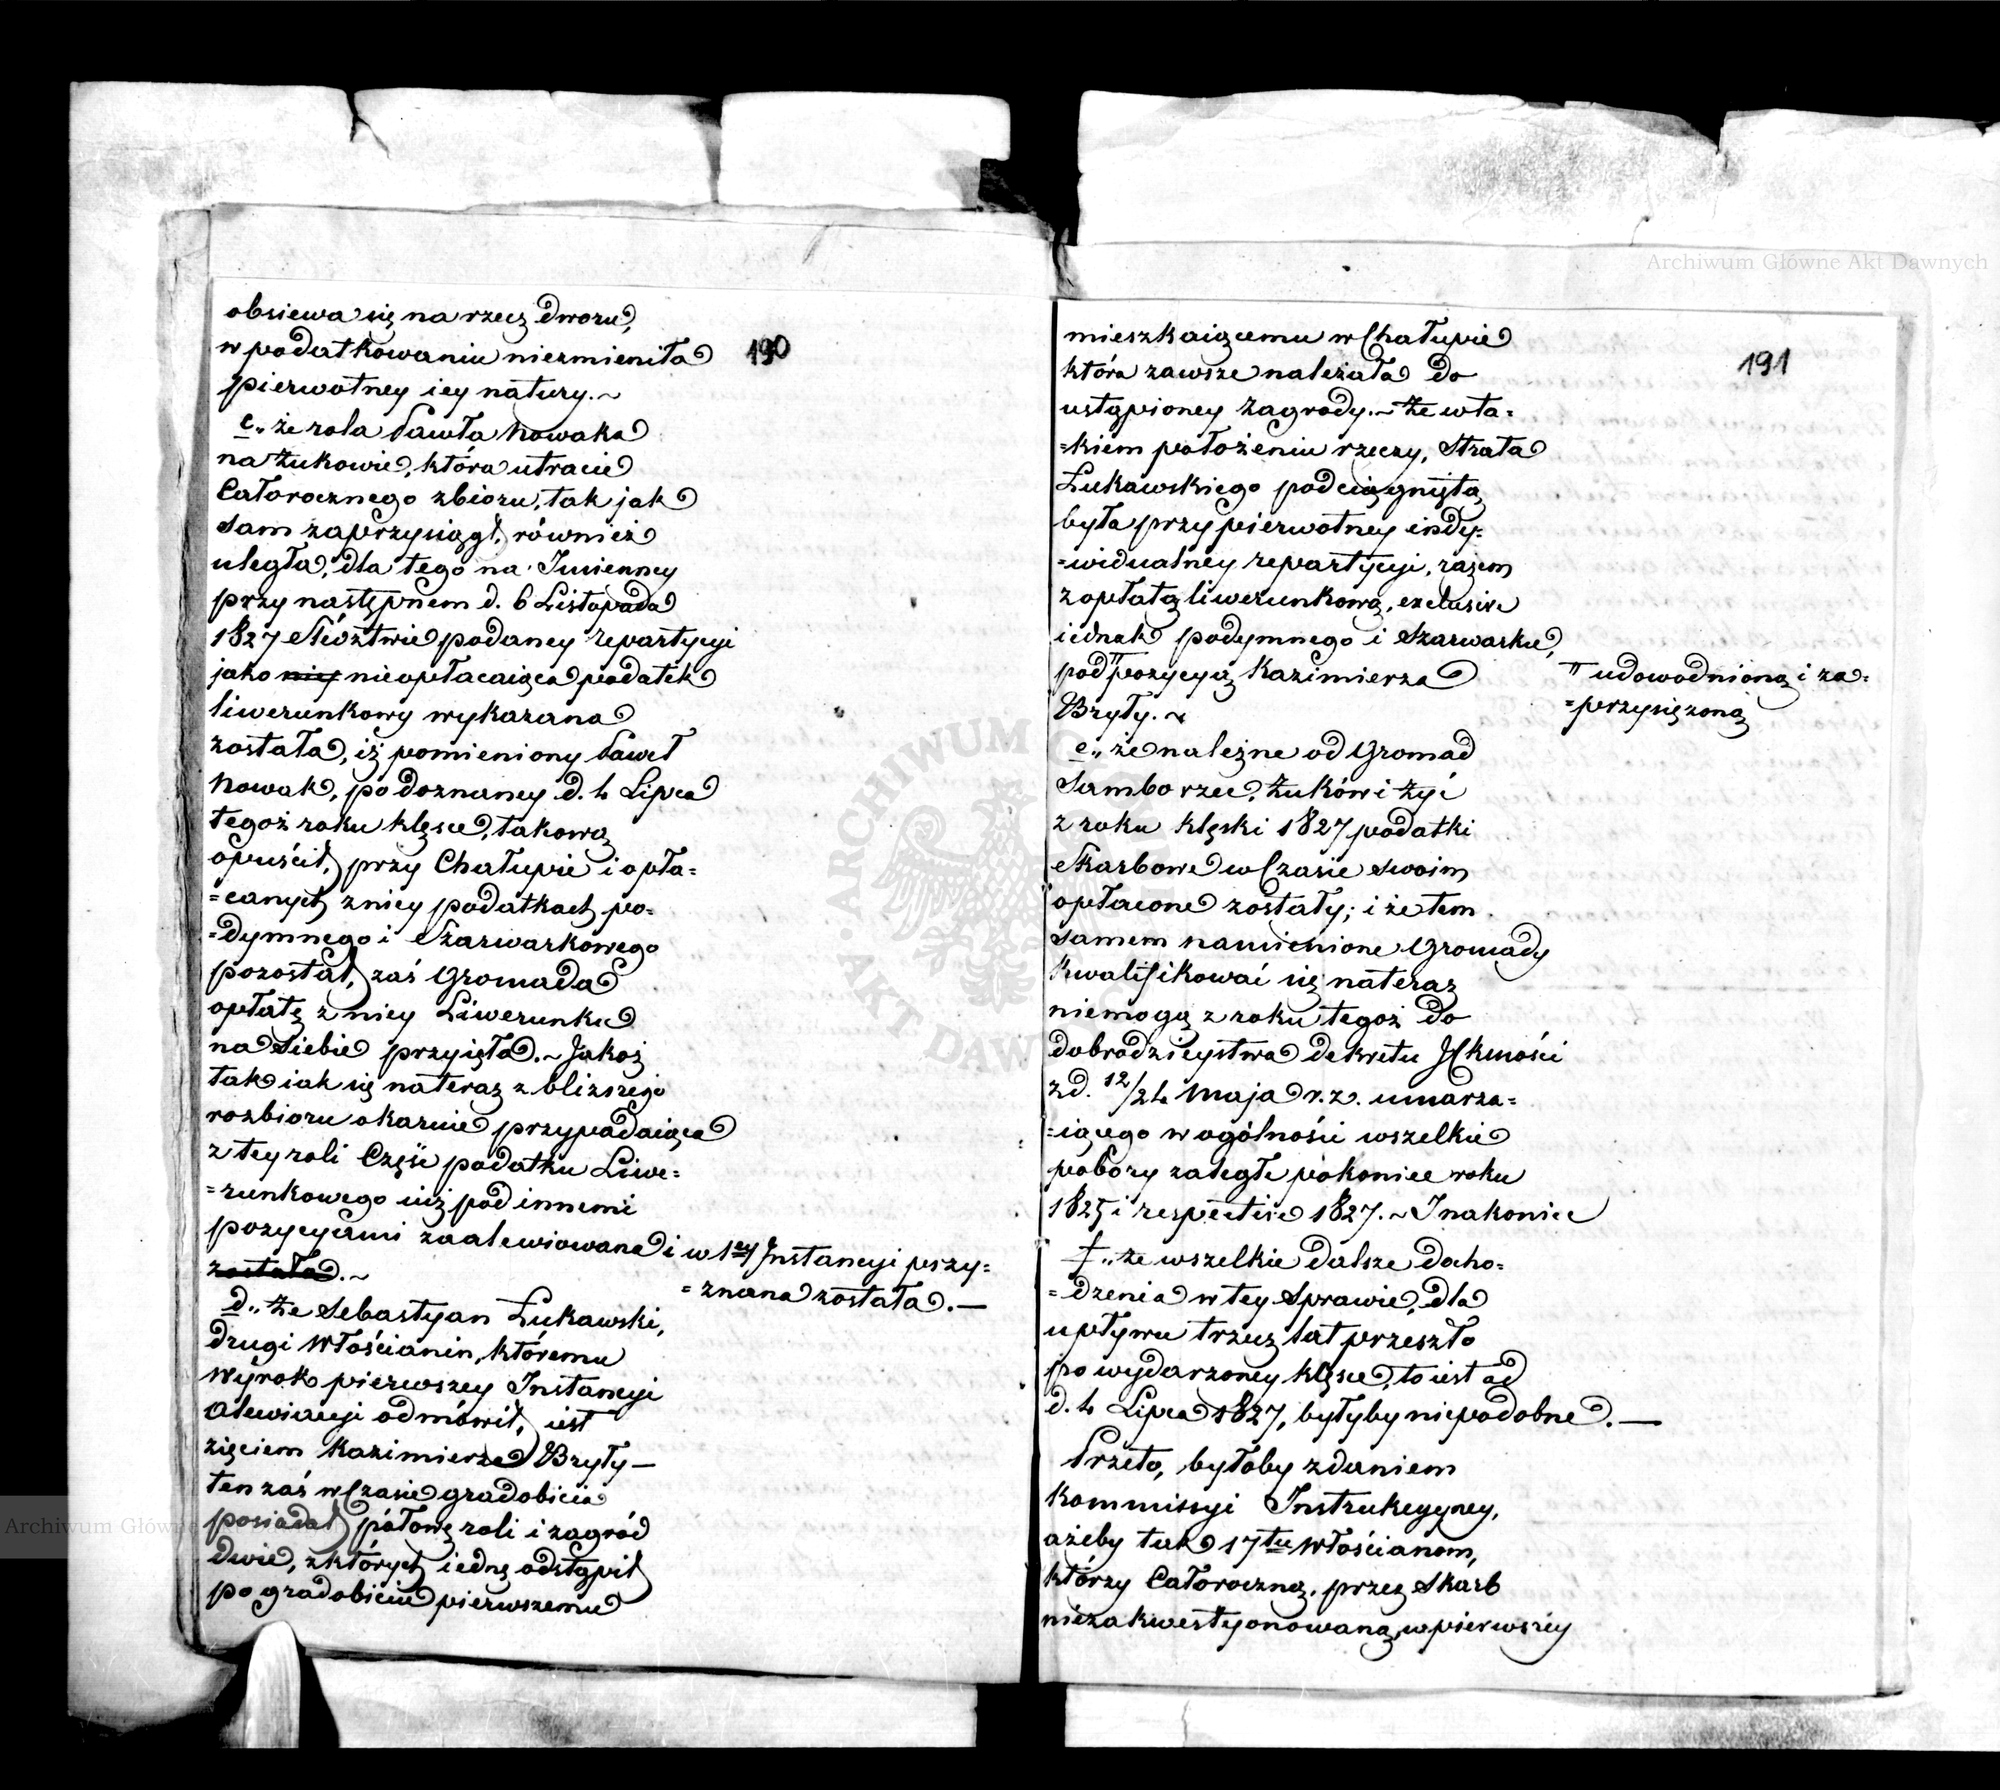 190
obsiewa się na rzecz dworu,
w podatkowaniu niezmieniła
pierwotney iey natury.~
c„ że rola Pawła Nowaka
na Żukowie, która utracie
Całorocznego zbioru, tak jak
Sam zaprzysiągł, również
uległa, dla tego na Imienney
przy następnem d. 6 Listopada
1827 Śledztwie podaney repartycyi
jako niey nieopłacaiąca podatek
liwerunkowy wykazana
została, iż pomieniony Paweł
Nowak, po doznaney d. 4 Lipca
tegoż roku klęsce, takową
opuścił, przy Chałupie i opła=
=canych z niey podatkach po=
=dymnego i Szarwarkowego
pozostał, zaś Gromada
opłatę z niey Liwerunku
na Siebie przyięła.~ Jakoż
tak iak się nateraz z bliższego
rozbioru okazuie przypadaiąca
z tey roli Część podatku Liwe=
=runkowego iuż pod innemi
pozycyami zaalewiowana i w 1ey Instancyi przy=
=znana została.—
została.~
d„ Że Sebastyan Łukawski,
drugi Włościanin, któremu
Wyrok pierwszey Instancyi
Alewiacyi odmówił, iest
zięciem Kazimierza Bryły—
ten zaś w Czasie gradobicia
posiadał połowę roli i zagród
dwie, z których iednę odstąpił
po gradobiciu pierwszemu
191
mieszkaiącemu w Chałupie
która zawsze należała do
ustąpioney Zagrody.~ Że w ta=
=kiem położeniu rzeczy, Strata
Łukawskiego podciągniętą
była przy pierwotney indy=
=widualney repartycyi, razem
z opłatą liwerunkową, exclusive
iednak podymnego i Szarwarku,
pod π pozycyą Kazimierza
π udowodnioną i za=
=przysiężoną
Bryły.~
e„ że należne od Gromad
Samborzec, Żuków i Żyć
z roku klęski 1827 podatki
Skarbowe w Czasie swoim
opłacone zostały; i że tem
samem namienione Gromady
Kwalifikować się nateraz
niemogą z roku tegoż do
dobrodzieystwa dekretu JCKmości
z d. 12/24 Maja r. z. umarza=
=iącego w ogólności wszelkie
pobory zaległe pokoniec roku
1825 i respective 1827.~ Inakoniec
f„ że wszelkie dalsze docho=
=dzenia w tey Sprawie, dla
upływu trzech lat przeszło
po wydarzoney klęsce, to iest od
d. 4 Lipca 1827, byłyby niepodobne.—
Przeto, byłoby zdaniem
Kommissyi Instrukcyyney,
ażeby tak 17tu Włościanom,
którzy Całoroczną, przez Skarb
niezakwestyonowaną, w pierwszey
ARCHIWUM GŁÓWNE AKT DAWNYCH
Archiwum Główne Akt Dawnych
Archiwum Główne